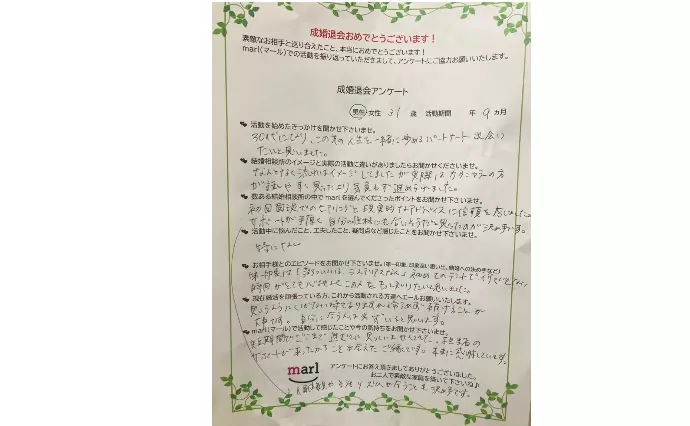 成婚退会おめでとうございます！
素敵なお相手と巡り合えたこと、本当におめでとうございます！
marl(マール)での活動を振り返っていただきまして、アンケートにご協力お願いいたします。
成婚退会アンケート
男性/女性 31 歳 活動期間 年 9 ヵ月
活動を始めたきっかけを聞かせ下さいませ。
30代になり、この先の人生を一緒に歩めるパートナーと出会い
たいと思いました。
結婚相談所のイメージと実際の活動に違いがありましたらお聞かせくださいませ。
なんとなく流れはイメージしてましたが実際はカウンセラーの方
が話しやすく思ったより
数ある結婚相談所の中で marl を選んでくださったポイントをお聞かせ下さいませ。
初回面談でのヒアリングと現実的なアドバイスに信頼を感じました。
サポートが手厚く自分の性格にも合いそうだと思ったのが決め手です。
活動中に悩んだこと、工夫したこと、疑問点など感じたことをお聞かせ下さいませ。
特になし
お相手様とのエピソードをお聞かせ下さいませ。(第一印象、印象深い思い出、結婚への決め手など)
第一印象は
時間が この人をもっと知りたいと思いました。
現在婚活を頑張っている方、これから活動される方達へエールお願いいたします。
思うようにいかない時もありますが 続けることが
大事です。 自分に合う人は必ずいると思います。
marl(マール)で活動して感じたことや今の気持ちをお聞かせ下さいませ。
短期間でここまで進むとは思っていませんでした。担当者の
サポートがあったからこそ出会えたご縁です。本当に感謝しています。
marl
アンケートにお答え頂きましてありがとうございました。
お二人で素敵な家庭を築いて下さいね♪
価値観や